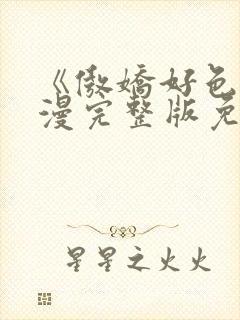 《傲娇好色
漫完整版免
星星之火火